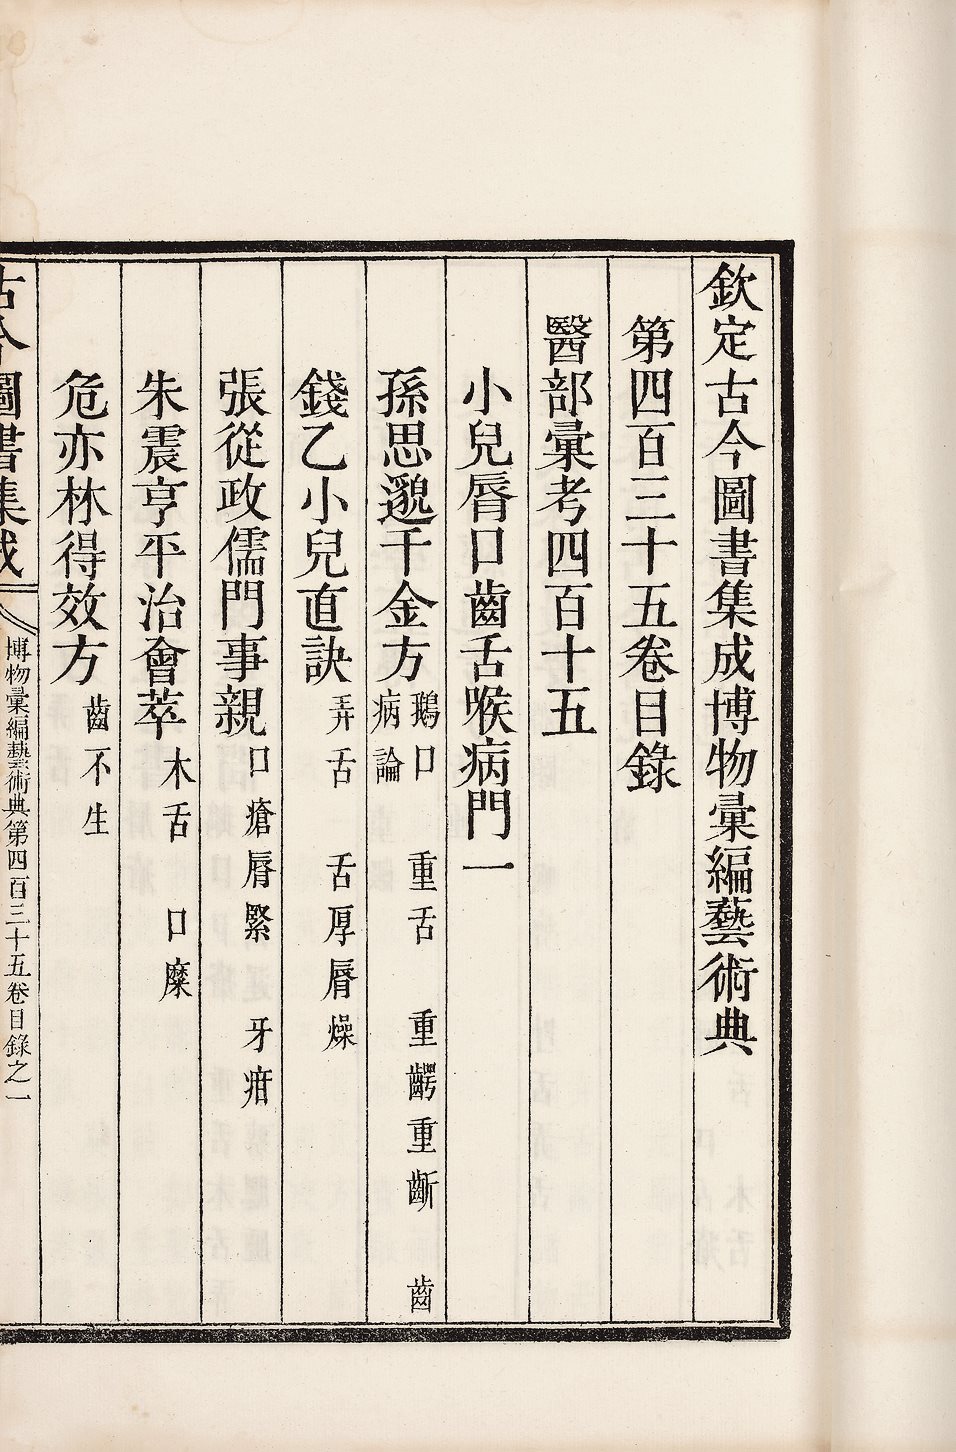 欽定古今圖書集成博物彙編藝術典
第四百三十五卷目錄
醫部彙考四百十五
小兒脣口齒舌喉病門一
孫思邈千金方 鵝口 重舌 重齶重齗 齒病論
錢乙小兒直訣 弄舌 舌厚脣燥
張從政儒門事親 口瘡脣緊 牙疳
朱震亨平治會萃 木舌 口糜
危亦林得效方 齒不生
古今圖書集成 博物彙編藝術典第四百三十五卷目錄之一